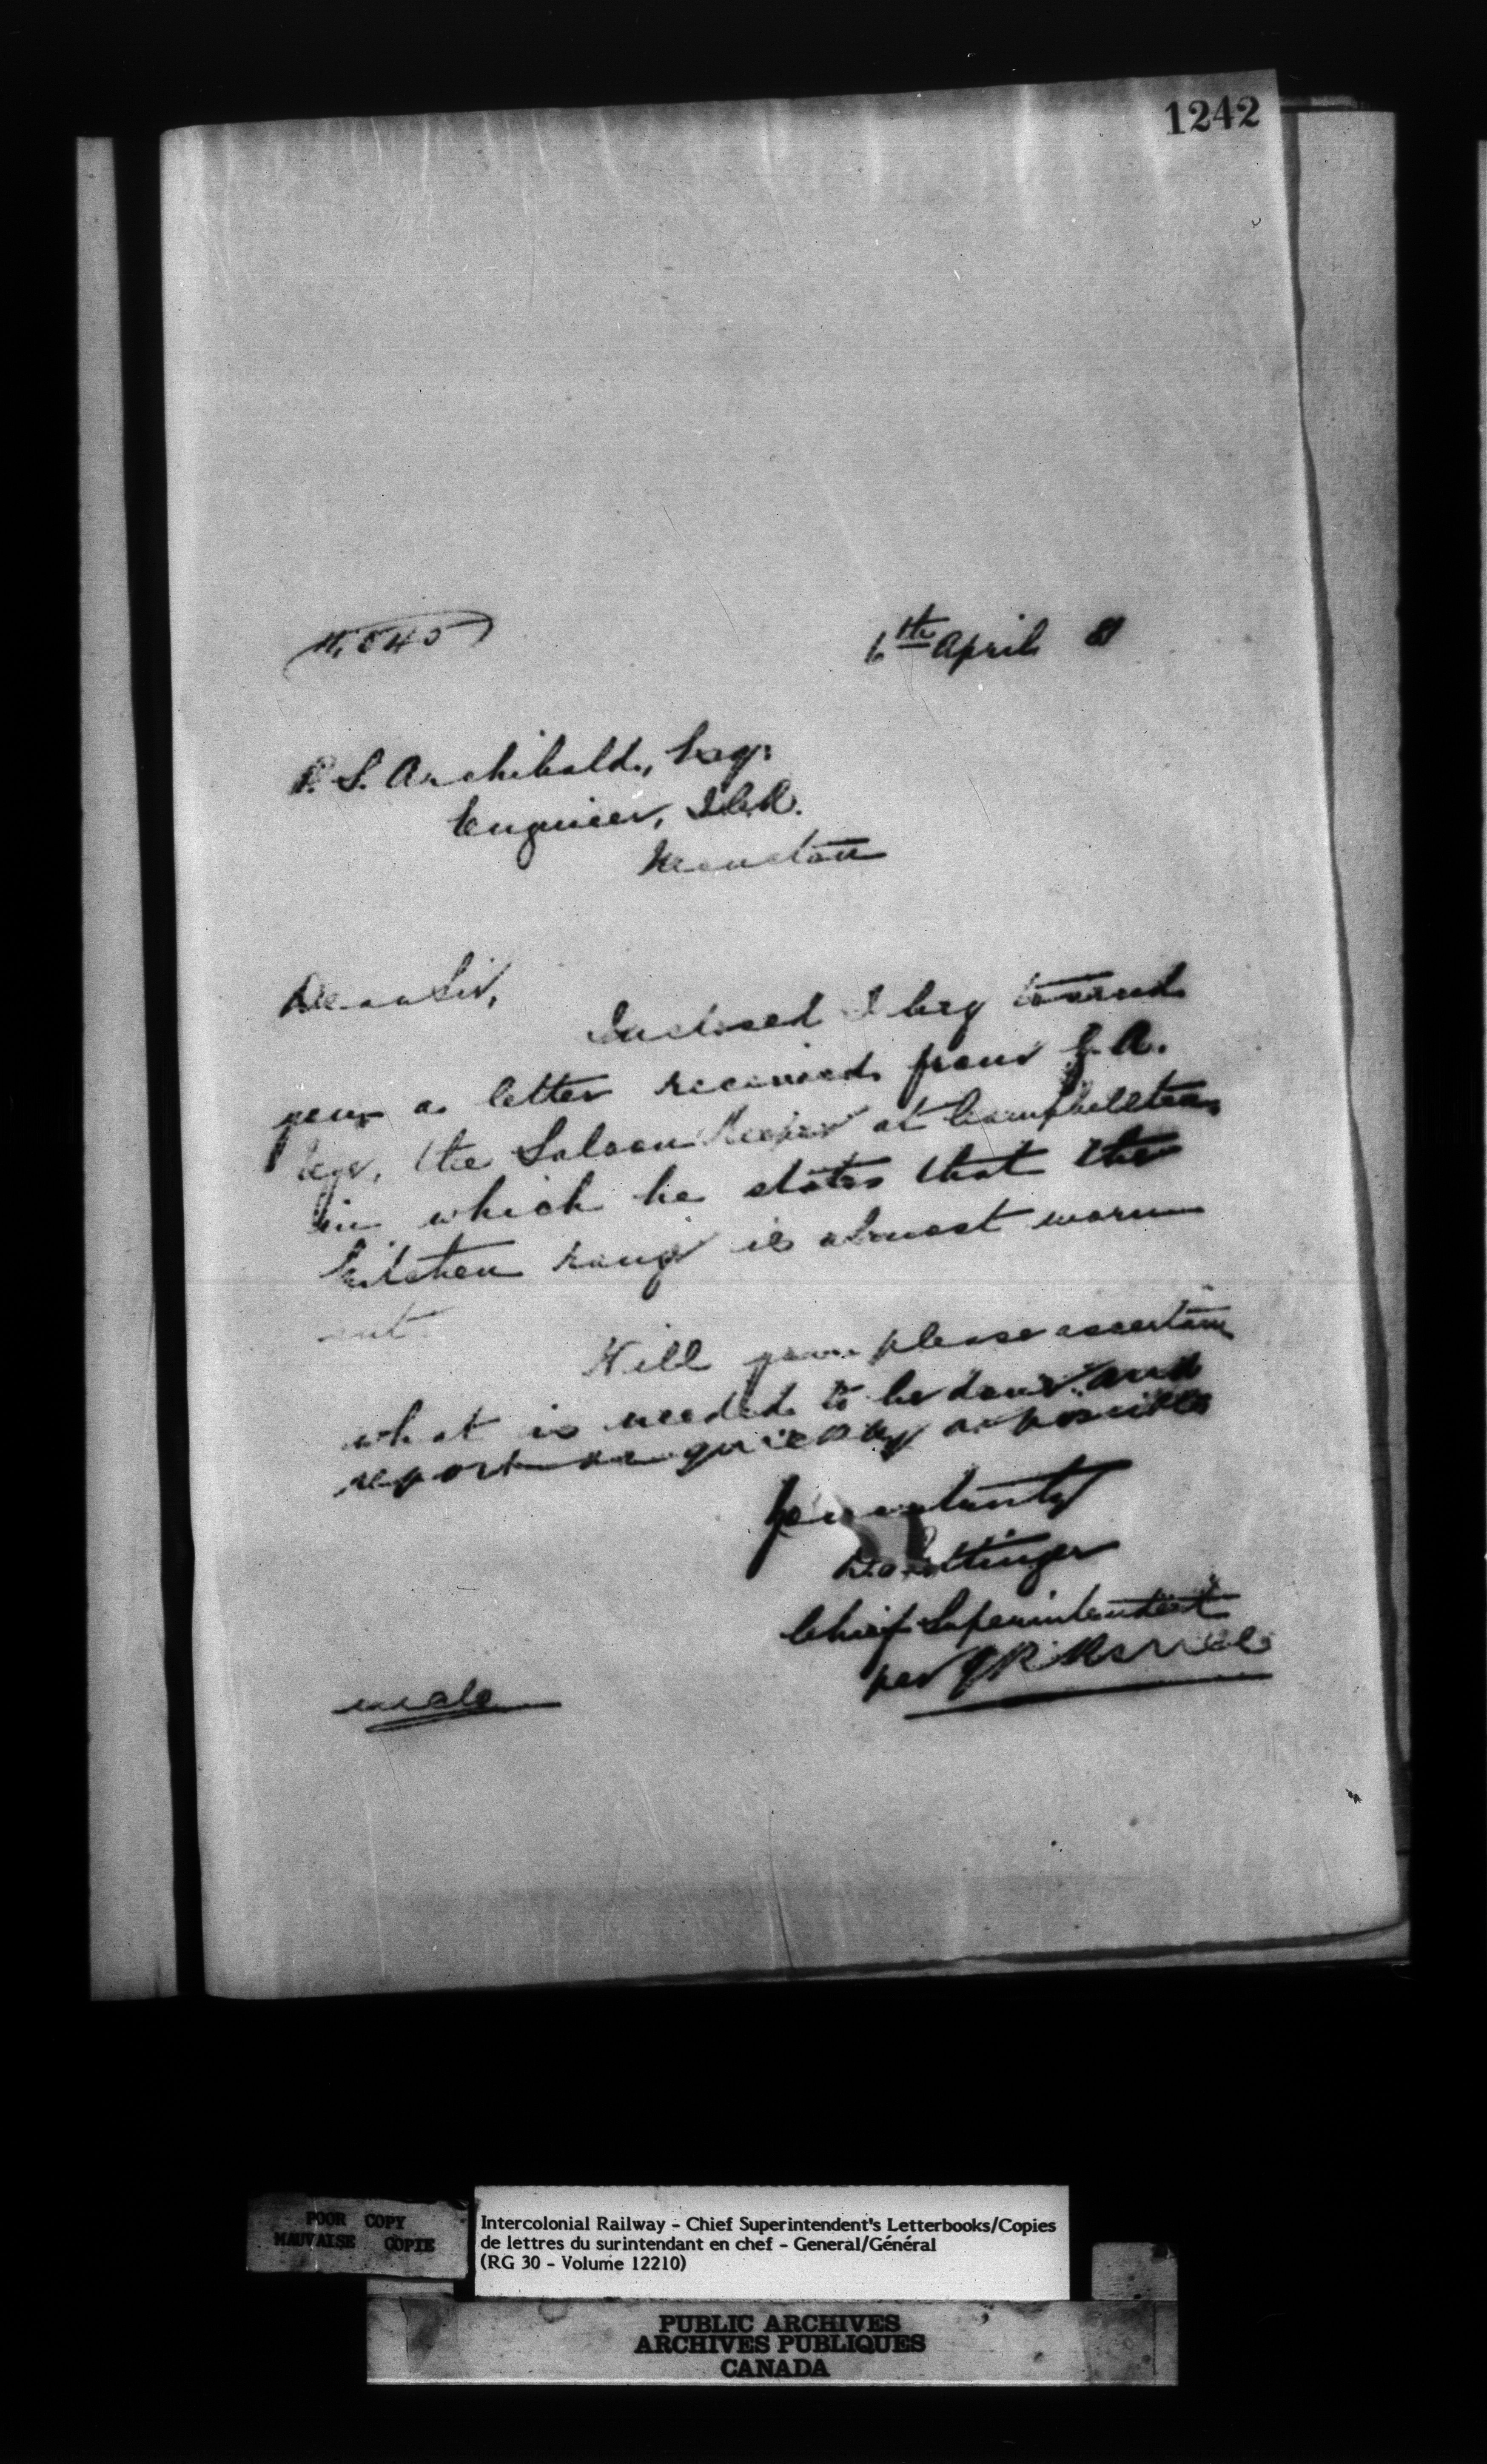 1242
6th April 81
P. S. Archibald, Esq:
Engineer, I.C.R.
Moncton
Dear Sir,
Inclosed I beg to send
you a letter received from
the Saloon Keeper at Campbellton
in which he states that the
kitchen range is almost worn
out.
Will you please ascertain
what is needed to be done and
report as quickly as possible
Yours truly
D. Pottinger
Chief Superintendent
per
encls
POOR COPY
MAUVAISE COPIE
Intercolonial Railway - Chief Superintendent's Letterbooks/Copies
de lettres du surintendant en chef - General/Général
(RG 30 - Volume 12210)
PUBLIC ARCHIVES
ARCHIVES PUBLIQUES
CANADA